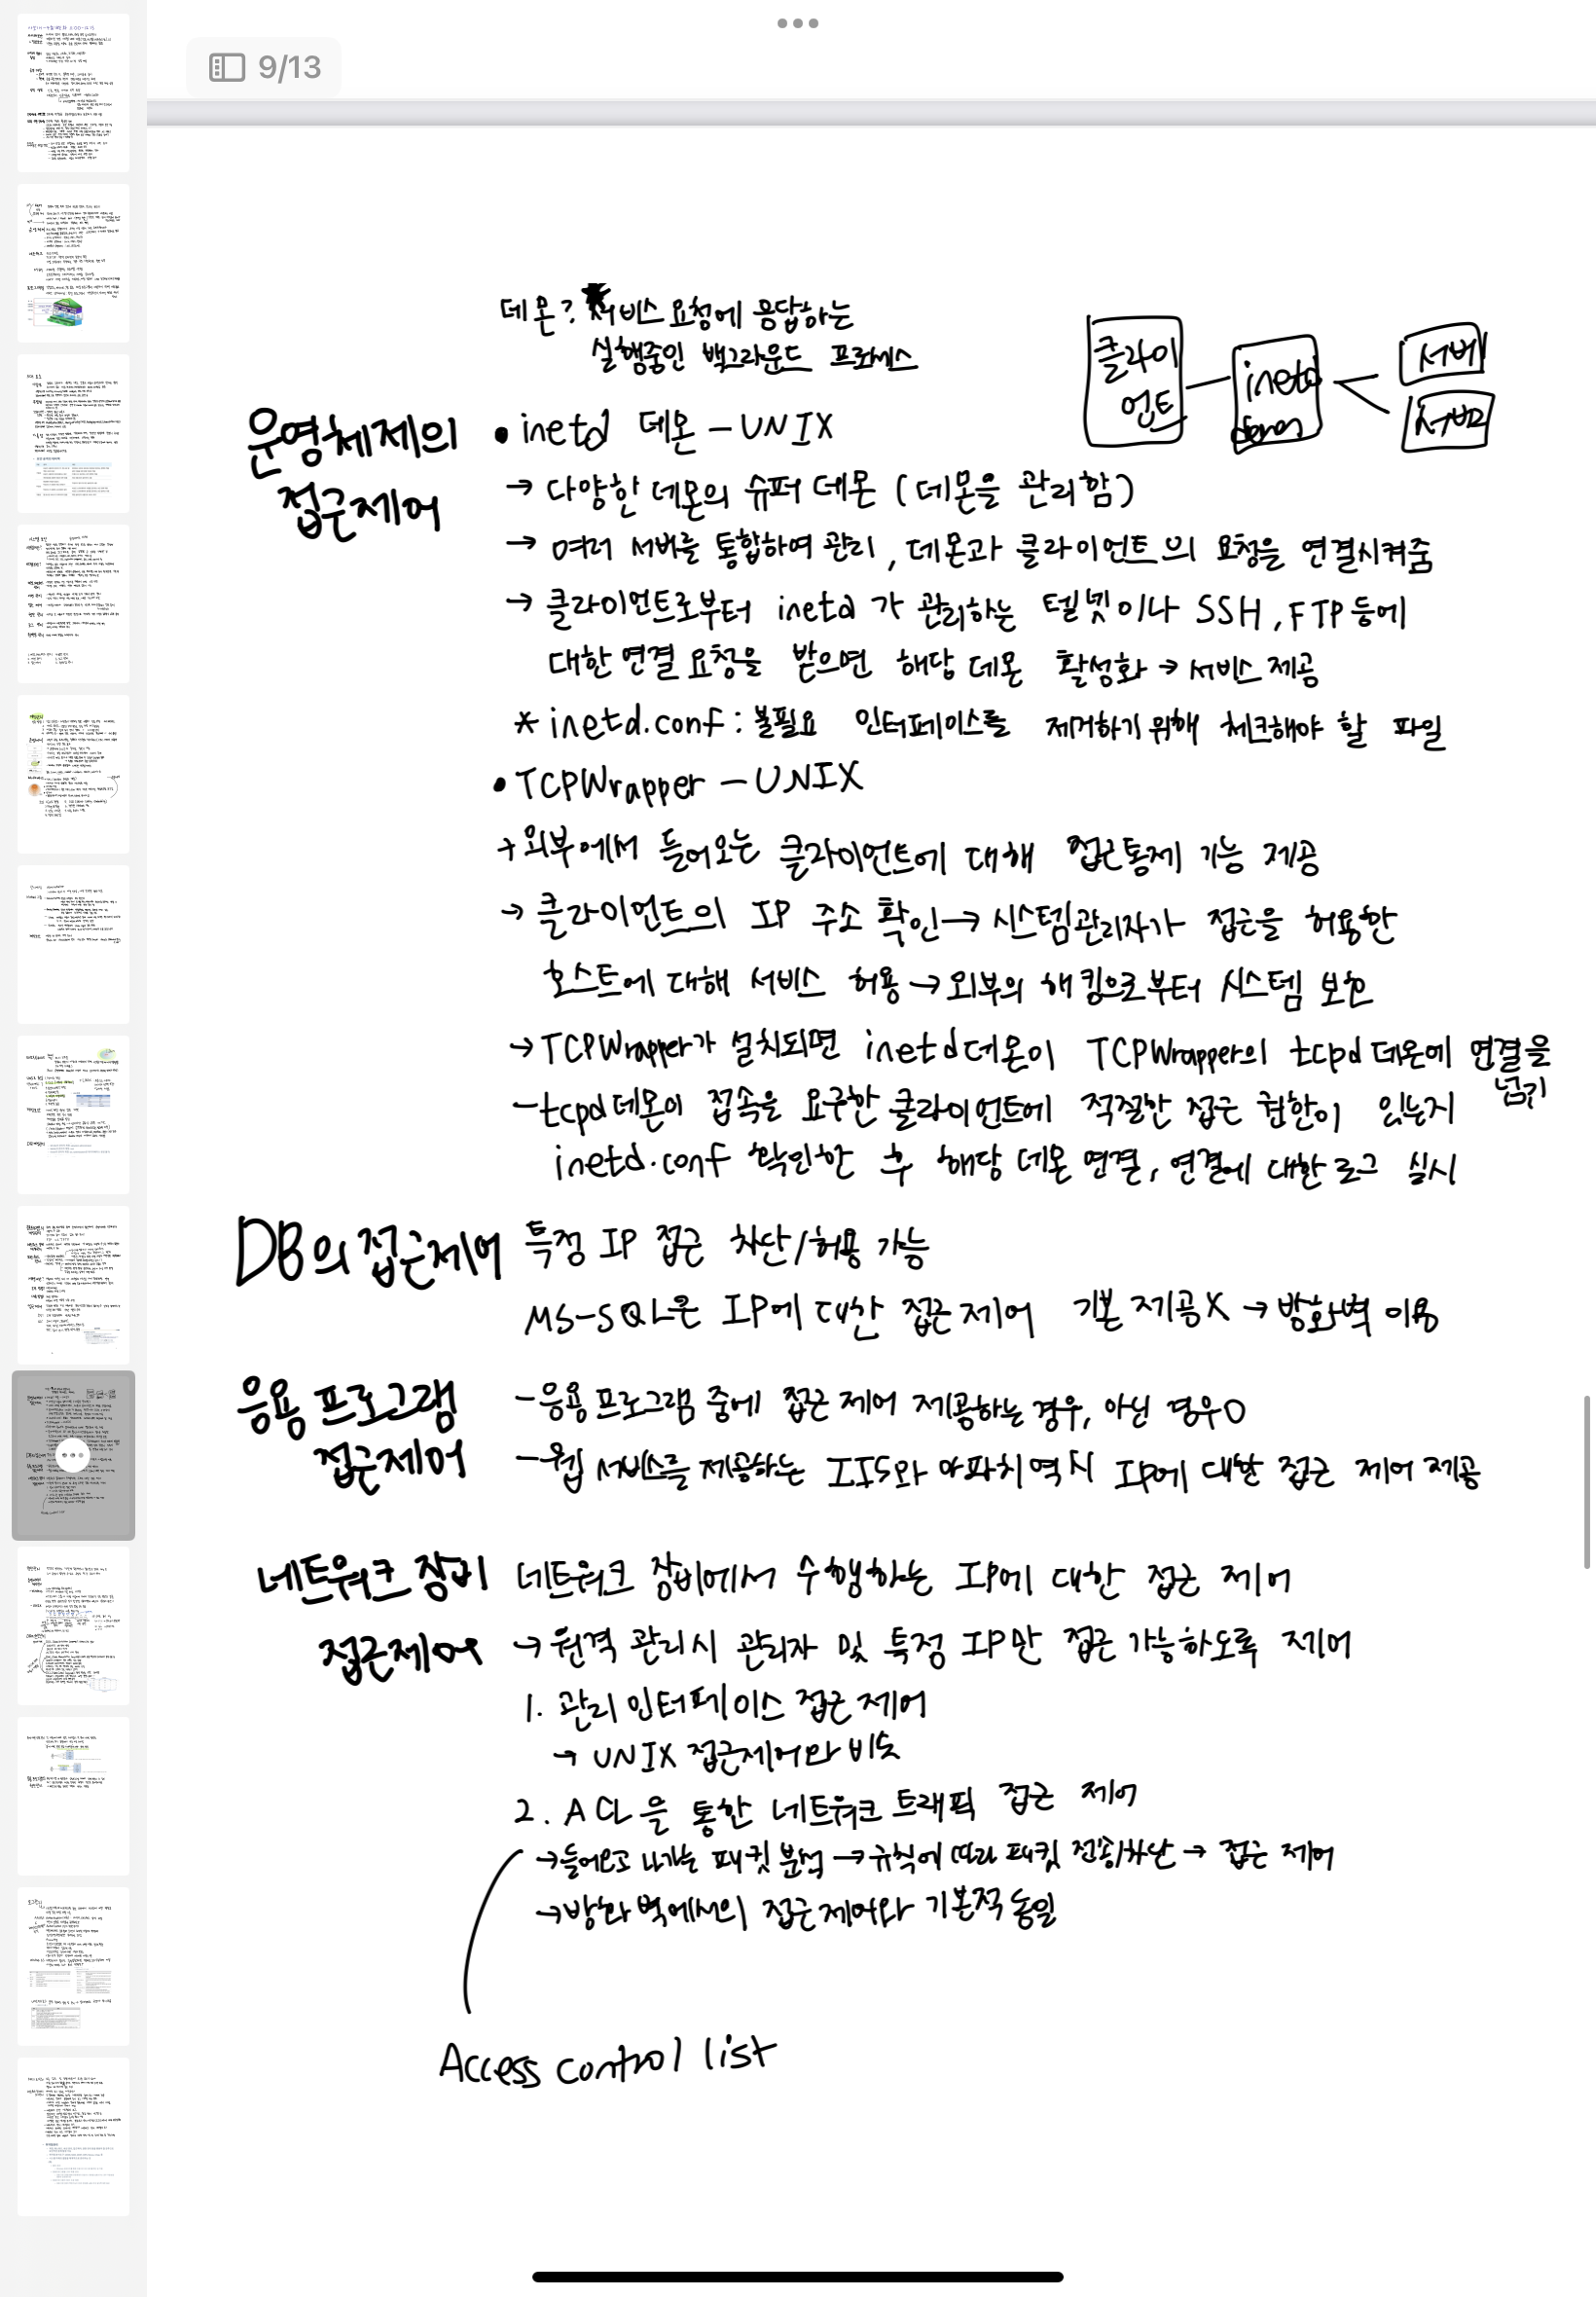 9/13
데몬? 서비스 요청에 응답하는
실행중인 백그라운드 프로세스
클라이
언트
inetd
서버
서버2
운영체제의
접근제어
• inetd 데몬 - UNIX
→ 다양한 데몬의 슈퍼 데몬 (데몬을 관리함)
→ 여러 서버를 통합하여 관리, 데몬과 클라이언트의 요청을 연결시켜줌
→ 클라이언트로부터 inetd가 관리하는 텔넷이나 SSH, FTP 등에
대한 연결 요청을 받으면 해당 데몬 활성화 → 서비스 제공
* inetd.conf : 불필요 인터페이스를 제거하기 위해 체크해야 할 파일
• TCPWrapper - UNIX
→ 외부에서 들어오는 클라이언트에 대해 접근통제 기능 제공
→ 클라이언트의 IP 주소 확인 → 시스템관리자가 접근을 허용한
호스트에 대해 서비스 허용 → 외부의 해킹으로부터 시스템 보호
→ TCPWrapper가 설치되면 inetd데몬이 TCPWrapper의 tcpd 데몬에 연결을
넘기
- tcpd데몬이 접속을 요구한 클라이언트에 적절한 접근 권한이 있는지
inetd.conf 확인한 후 해당 데몬 연결, 연결에 대한 로그 실시
DB의 접근제어
특정 IP 접근 차단/허용 가능
MS-SQL은 IP에 대한 접근 제어 기본 제공X → 방화벽 이용
응용 프로그램
접근제어
- 응용 프로그램 중에 접근 제어 제공하는 경우, 아닌 경우O
- 웹 서비스를 제공하는 IIS와 아파치 역시 IP에 대한 접근 제어 제공
네트워크 장비
접근제어
네트워크 장비에서 수행하는 IP에 대한 접근 제어
→ 원격 관리시 관리자 및 특정 IP만 접근 가능하도록 제어
1. 관리 인터페이스 접근 제어
→ UNIX 접근제어와 비슷
2. ACL을 통한 네트워크 트래픽 접근 제어
→ 들어오고 나가는 패킷 분석 → 규칙에 따라 패킷 전송/차단 → 접근 제어
→ 방화벽에서의 접근제어와 기본적 동일
Access control list